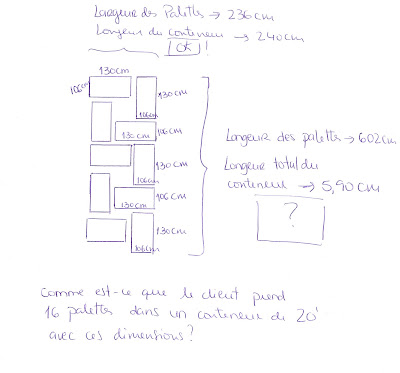 Largeur des Palettes → 236cm
Longeur du conteneur → 240cm
OK !
130cm
106cm
130cm
106cm
130cm
106cm
130cm
106cm
130cm
106cm
130cm
106cm
Largeur des palettes → 602cm
Longeur total du
conteneur → 5,90cm
?
Comme est-ce que le client prend
16 palettes dans un conteneur de 20'
avec ces dimensions?